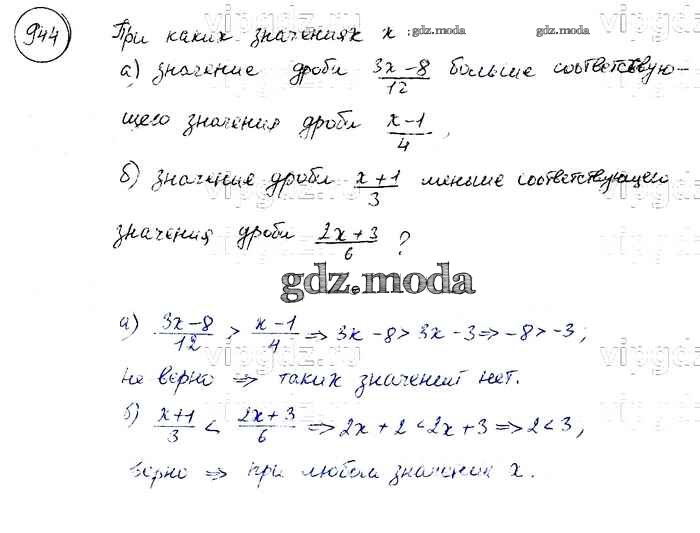 944 При каких значениях x : gdz.moda gdz.moda
а) значение дроби (3x-8)/12 больше соответствую-
щего значения дроби (x-1)/4,
б) значение дроби (x+1)/3 меньше соответствующего
значения дроби (2x+3)/6 ?
gdz.moda
а) (3x-8)/12 > (x-1)/4 ⇒ 3x-8 > 3x-3 ⇒ -8 > -3;
не верно ⇒ таких значений нет.
б) (x+1)/3 < (2x+3)/6 ⇒ 2x+2 < 2x+3 ⇒ 2 < 3,
верно ⇒ при любом значении x.